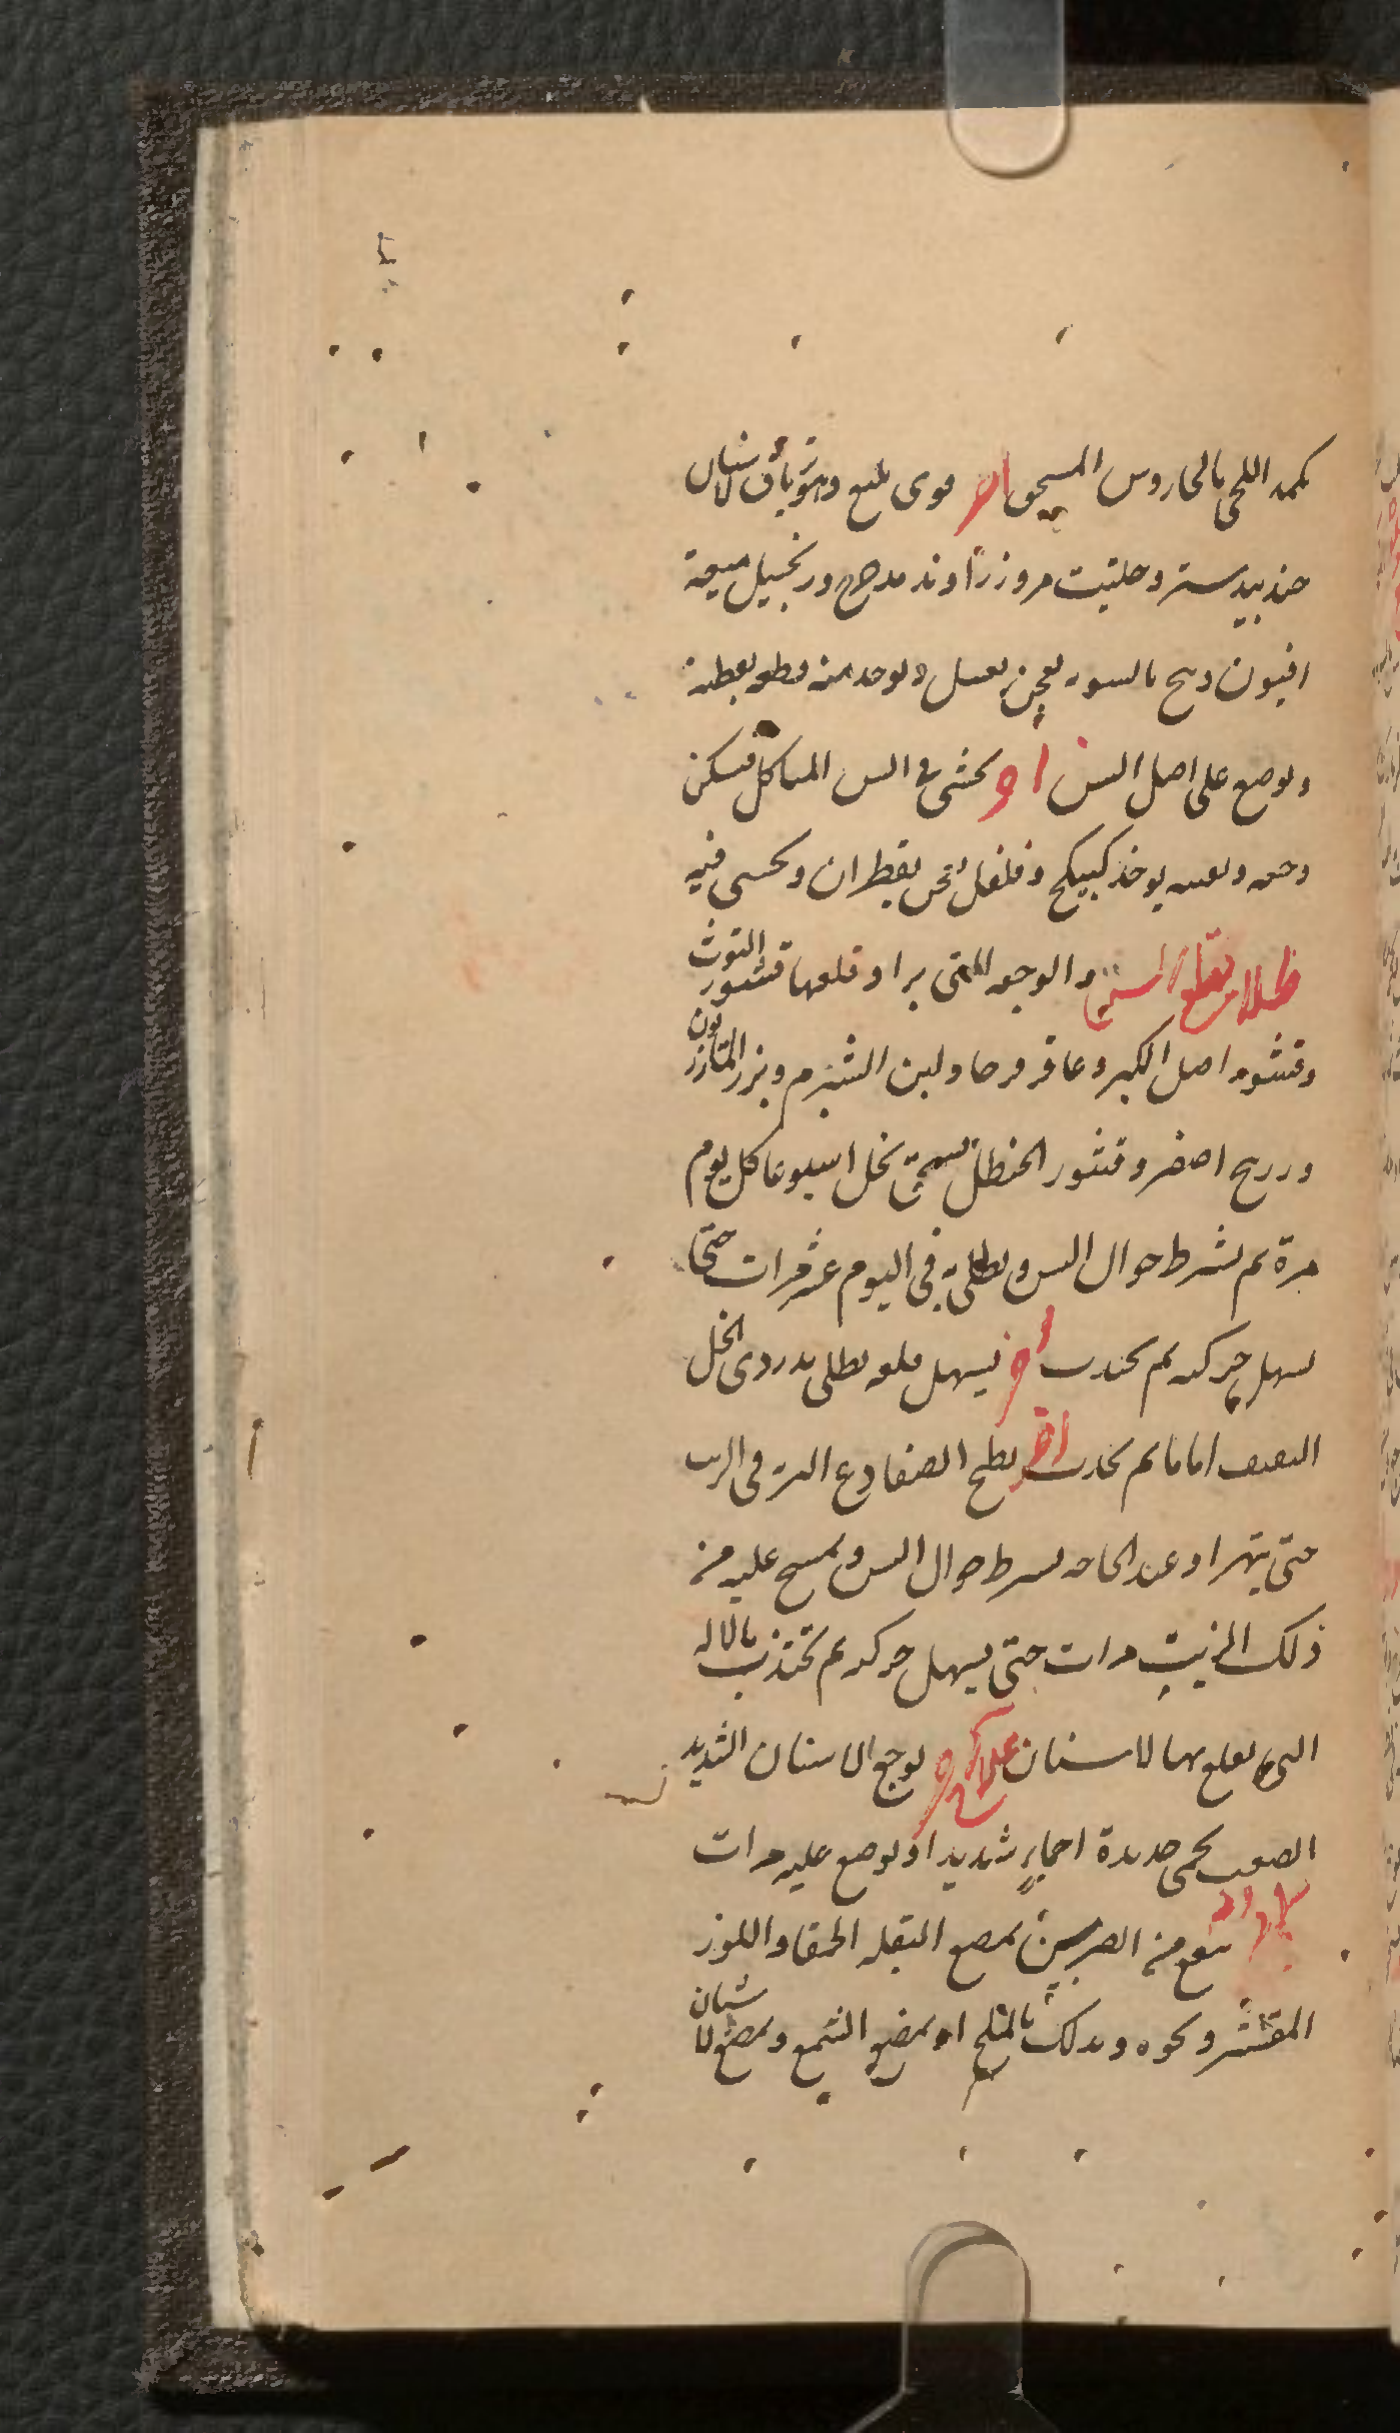 يكمد اللحى بالجاورس المسخن اخر قوى بليغ وهو ترياق الاسنان
جندبيدستر وحلتيت مر وزراوند مدحرج وزنجبيل ميعة
افيون وبنج بالسوية يعجن بعسل ويوخذ منه قطعه بقطنه
ويوضع على اصل السن او يحشى فى السن المتاكل فيسكن
وجعه وبعينه يوخذ كبيكج وفلفل يعجن بقطران ويحشى فيه
طلا يقلع السن والوجعه التى يراد قلعها قشور التوث
وقشور اصل الكبر وعاقرقرحا ولبن الشبرم وبزر المازريون
وزرنيخ اصفر وقشور الحنظل يسحق بخل اسبوعا كل يوم
مرة ثم يشرط حوال السن ويطلى به فى اليوم عشر مرات حتى
يسهل حركته ثم يجذب اخر ليسهل قلعه يطلى بدردى الخل
الثقيف اياما ثم يجذب اخر يطبخ الضفادع البرية فى الزيت
حتى يتهرا وعند الحاجه يشرط حوال السن ويمسح عليه من
ذلك الزيت مرات حتى يسهل حركته ثم يجتذب بالاله
التى يقلع بها الاسنان علاج اخر لوجع الاسنان الشديد
الصعب يحمى حديدة احماء شديدا ويوضع عليه مرات
ينفع من الضرس يمضغ البقله الحمقا واللوز
المقشر ونحوه ويدلك بالملح او يمضغ الشمع ويمضغ الاشنان